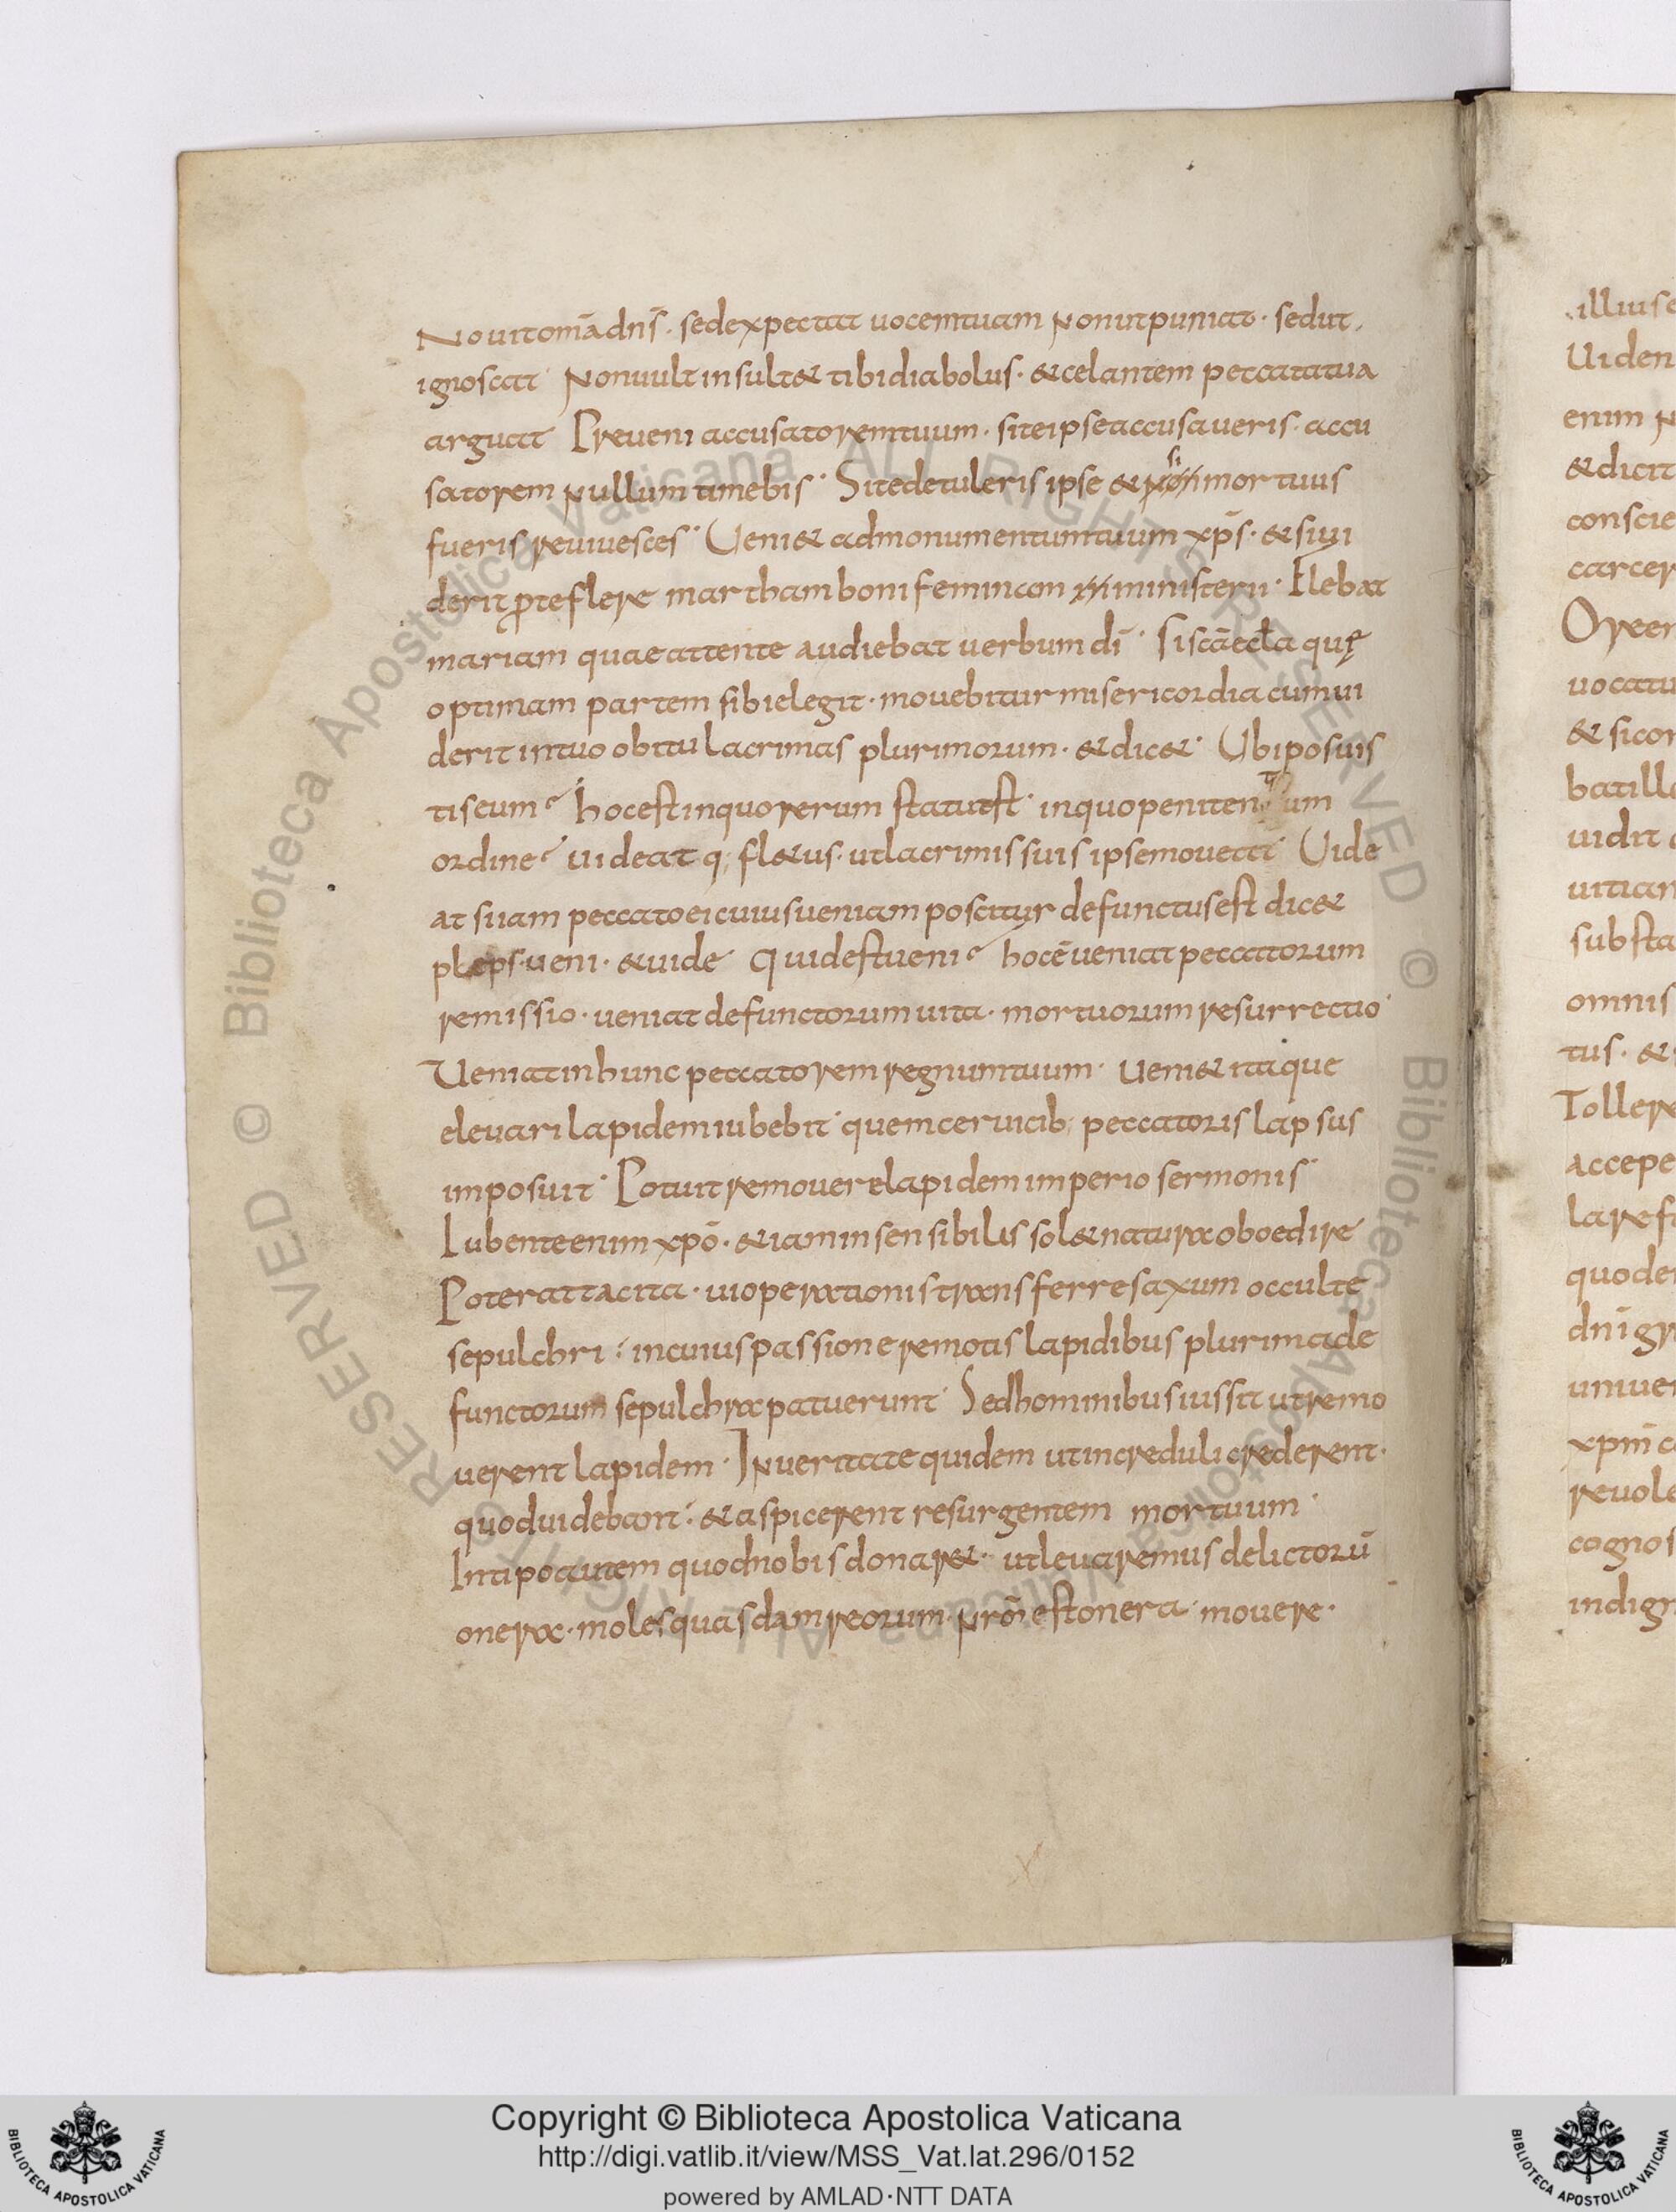 Nouit omīa dn̄s · sed expectat uocem tuam Non ut puniat · sed ut
ignoscat Non uult insult& tibi diabolus · & celantem peccata tua
arguat Preueni accusatorem tuum · si te ipse accusaueris · accu
satorem Nullum timebis · Si te detuleris ipse & si mortuus
fueris reuiuesces · Ueni& ad monumentum tuum xp̄s · & si ui
derit ꝓ te flere martham boni feminam ministerii · Flebat
mariam quae attente audiebat uerbum dī · si sc̄a eccła quę
optimam partem sibi elegit · mouebitur misericordia cum ui
derit in tuo obitu lacrimas plurimorum · & dic& · Ubi posuis
tis eum? hoc est in quo rerum statu est · in quo penitentium
ordine? uideat q; fl&us · ut lacrimis suis ipse moueat Uide
at si iam peccato ei cuius ueniam poscitur defunctus est dic&
pleps · ueni · & uide Quid est ueni? hoc ē ueniat peccatorum
remissio · ueniat defunctorum uita · mortuorum resurrectio
Ueniat in hunc peccatorem regnum tuum · ueni& itaque
eleuari lapidem iubebit · quem ceruicib; peccatoris lapsus
imposuit · Potuit remouere lapidem imperio sermonis
Iubente enim xpō · & iam insensibilis sol& natura oboedire
Poterat tacita · ui operationis transferre saxum occulte
sepulchri · in cuius passione remotis lapidibus plurima de
functorum sepulchra patuerunt Sed hominibus iussit ut remo
uerent lapidem · In ueritate quidem ut increduli crederent ·
quod uidebant · & aspicerent resurgentem mortuum ·
In tipo autem quod nobis donar& · ut leuaremus delictorū
onera · moles quasdam reorum · Nr̄ōī est onera mouere ·
Copyright © Biblioteca Apostolica Vaticana
http://digi.vatlib.it/view/MSS_Vat.lat.296/0152
powered by AMLAD·NTT DATA